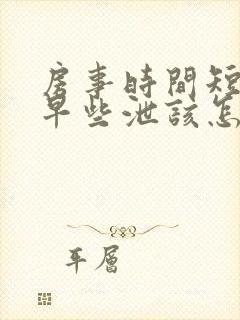 房事時間短
早些泄該怎
平層